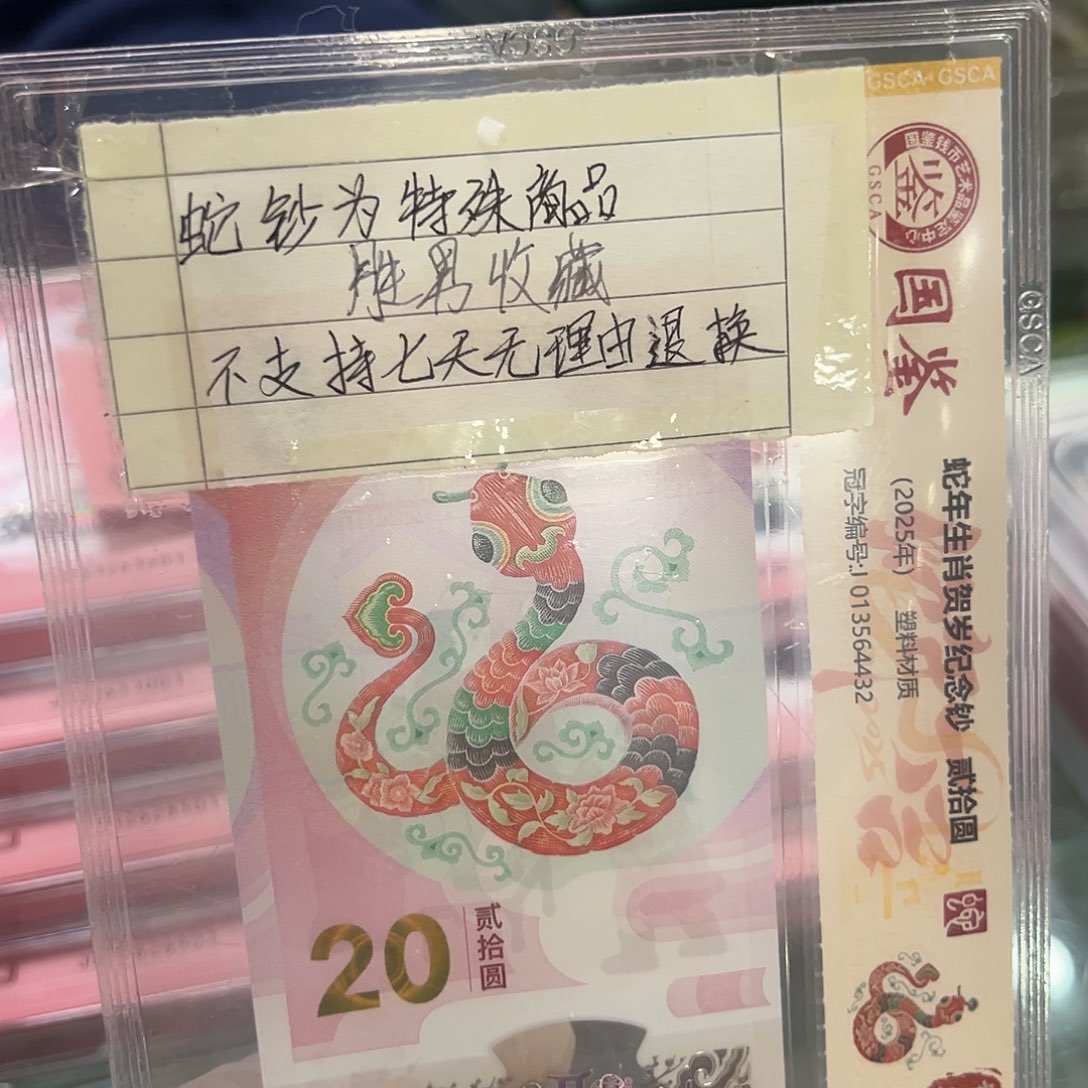 蛇钞为特殊商品
胜男收藏
不支持七天无理由退换
GSCA
GSCA GSCA
国鉴钱币艺术品鉴定中心
鉴
GSCA
国鉴
GSCA
蛇年生肖贺岁纪念钞 贰拾圆
(2025年) 塑料材质
冠字编号:J 013564432
20
贰拾圆
蛇